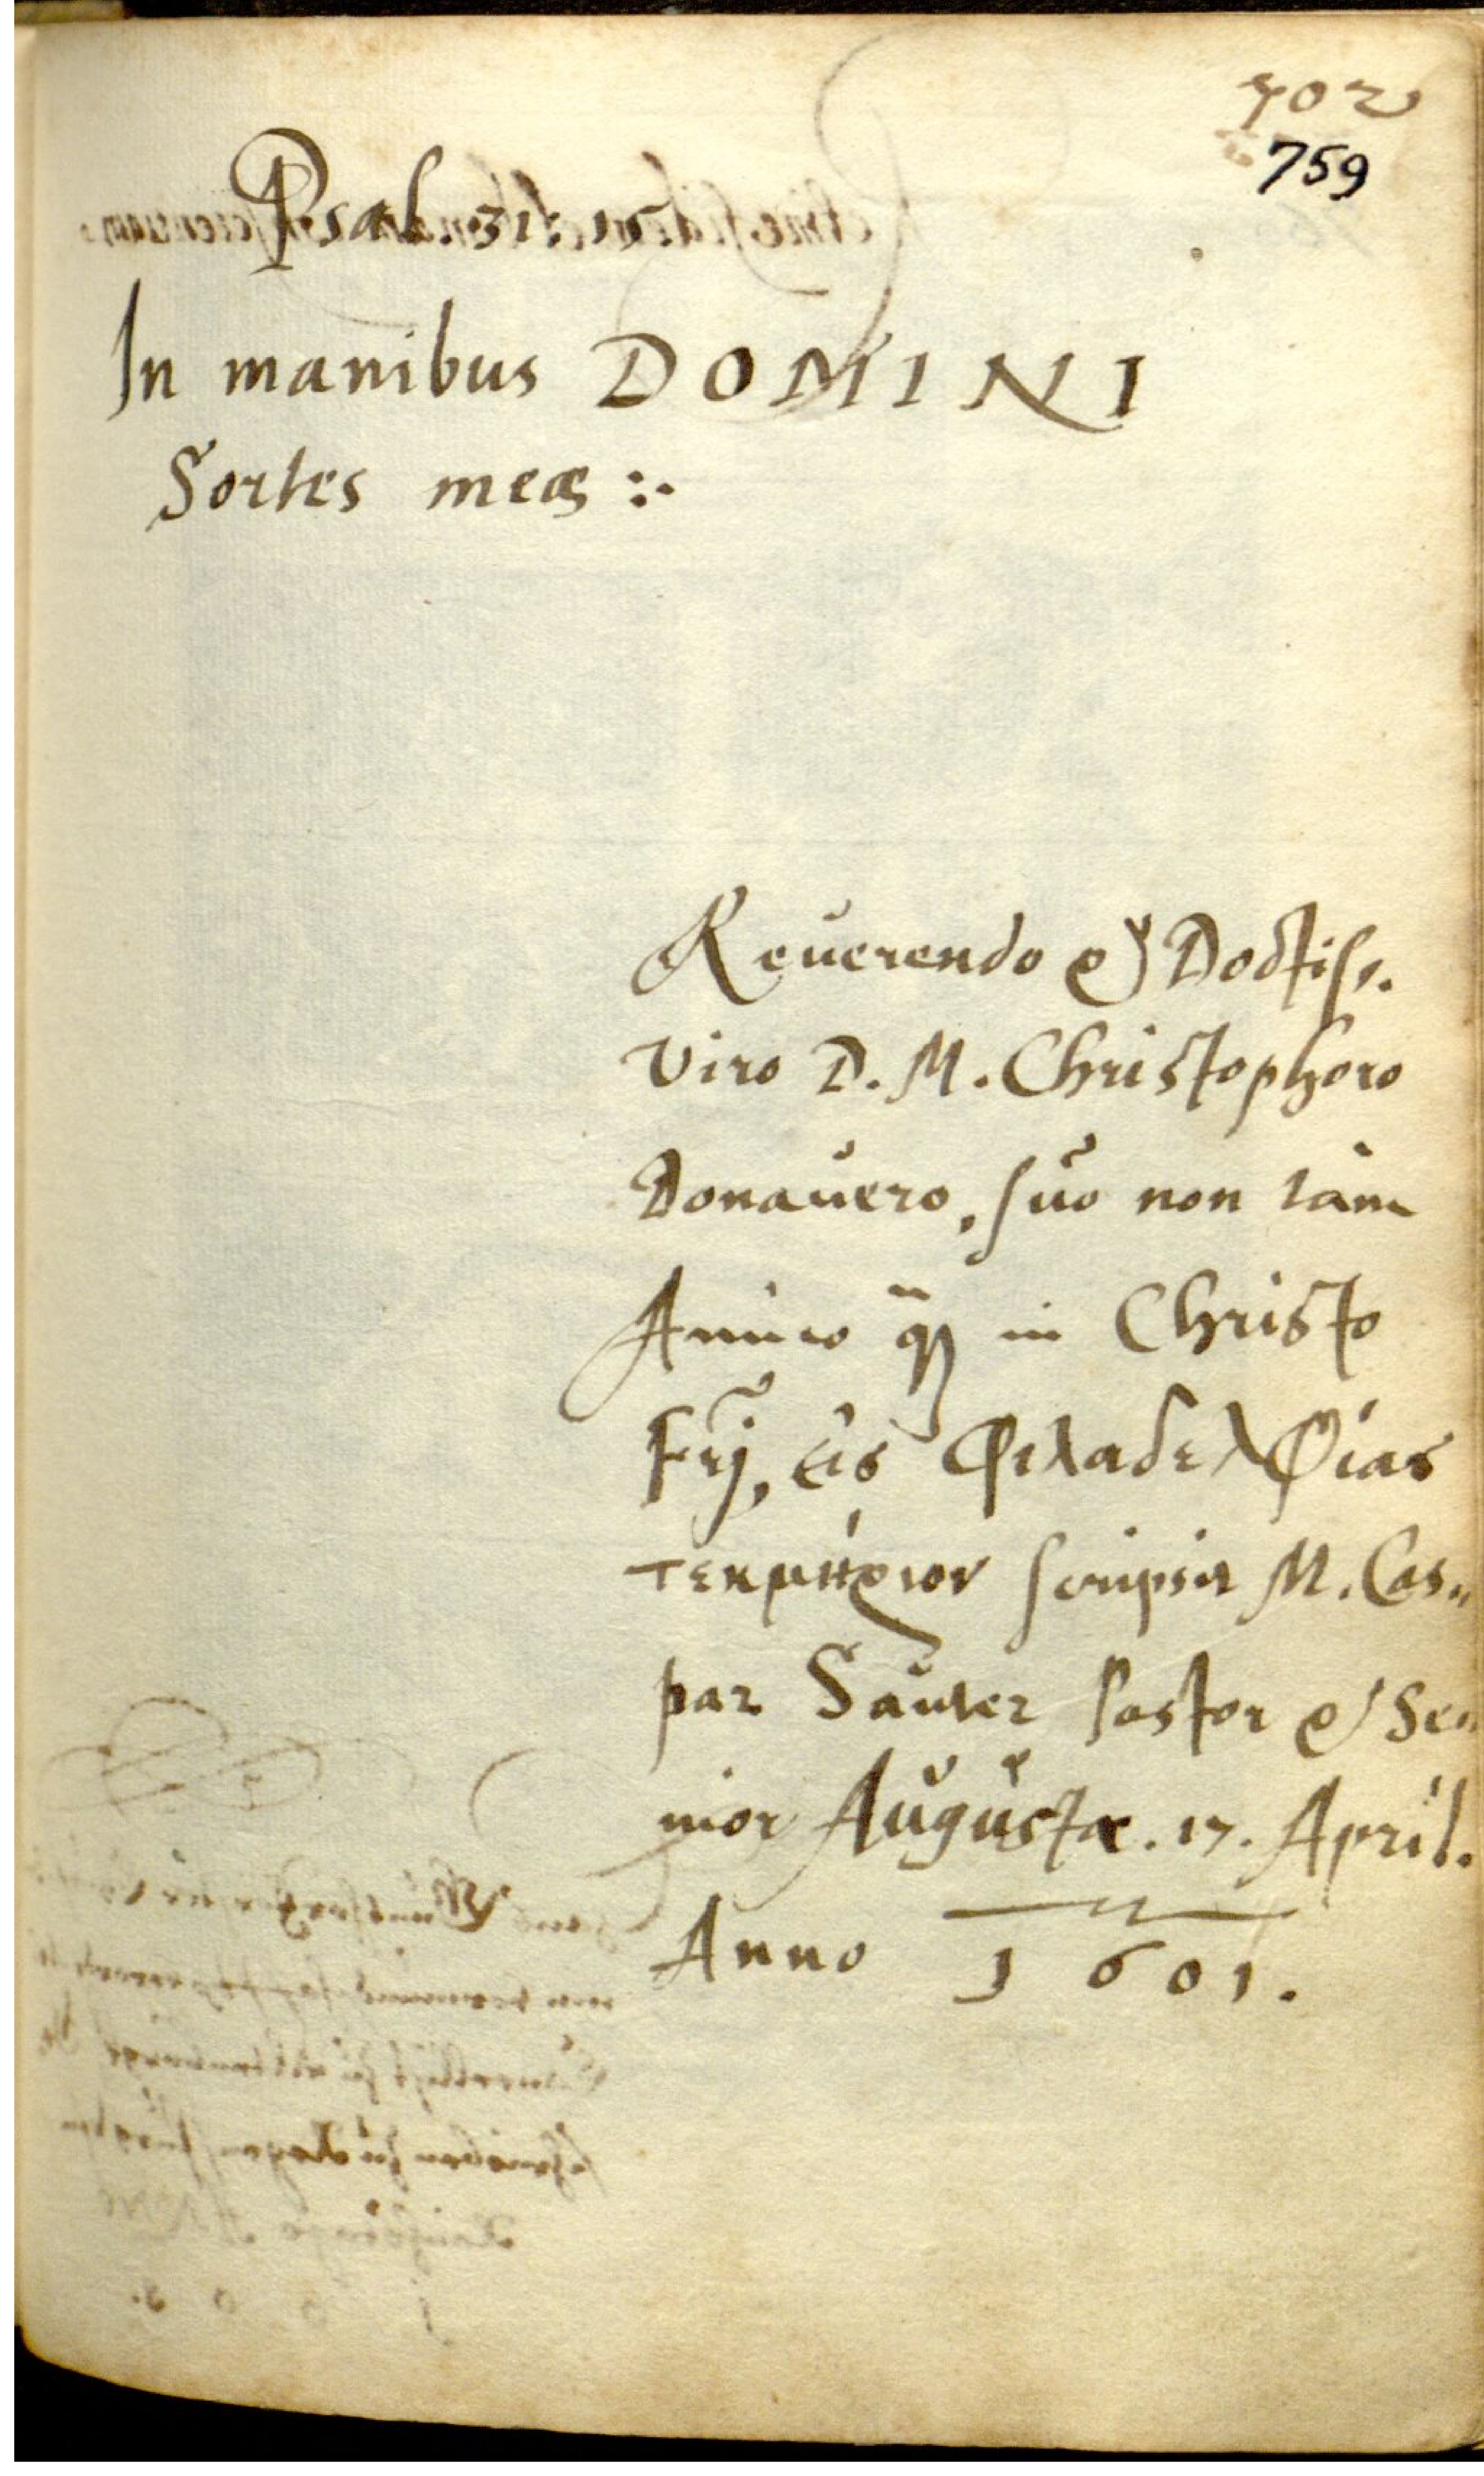 702
759
Psal. 31. 15.
In manibus DOMINI
Sortes meæ :.
Reuerendo & Doctiss.
Viro D. M. Christophoro
Donauero, suo non tàm
Amico q̃ in Christo
Frĩ, εἰς Φιλαδελφίας
τεκμήριον scripsit M. Cas„
par Sauter Pastor & Se„
nior Augustæ. 17. April.
Anno 1601.